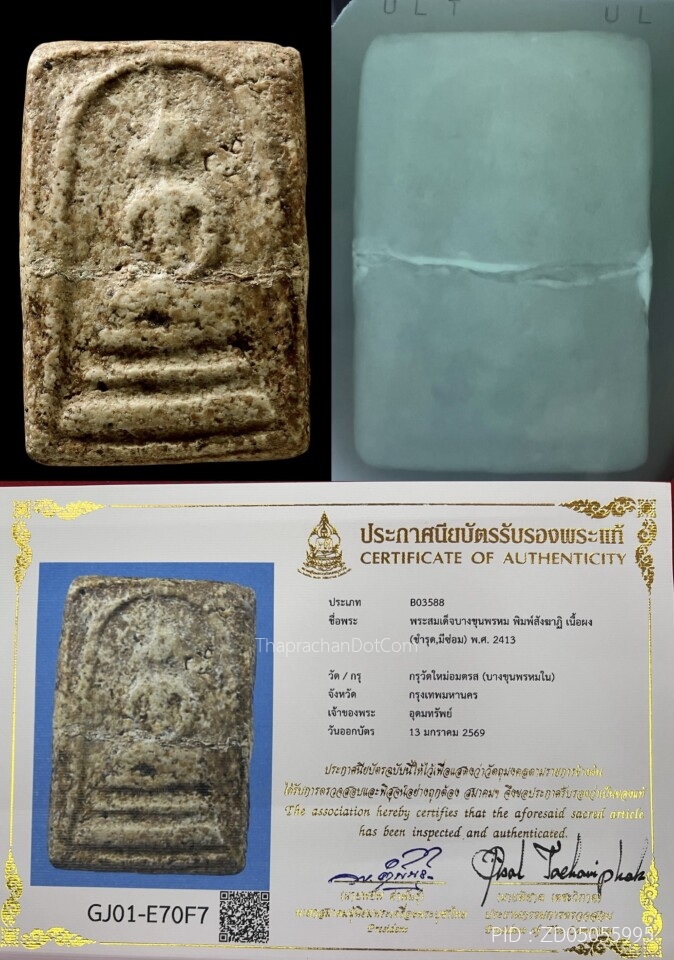 ULT
UL
ประกาศนียบัตรรับรองพระแท้
CERTIFICATE OF AUTHENTICITY
ประเภท B03588
ชื่อพระ พระสมเด็จบางขุนพรหม พิมพ์สังฆาฏิ เนื้อผง
(ชำรุด,มีซ่อม) พ.ศ. 2413
ThaprachanDotCom
วัด / กรุ กรุวัดใหม่อมตรส (บางขุนพรหมใน)
จังหวัด กรุงเทพมหานคร
เจ้าของพระ อุดมทรัพย์
วันออกบัตร 13 มกราคม 2569
ประกาศนียบัตรฉบับนี้ให้ไว้เพื่อแสดงว่าวัตถุมงคลตามรายการข้างต้น
ได้รับการตรวจสอบและพิสูจน์อย่างถูกต้อง สมาคมฯ จึงขอประกาศรับรองว่าเป็นของแท้
The association hereby certifies that the aforesaid sacred article
has been inspected and authenticated.
President
GJ01-E70F7
PID : ZD05055995